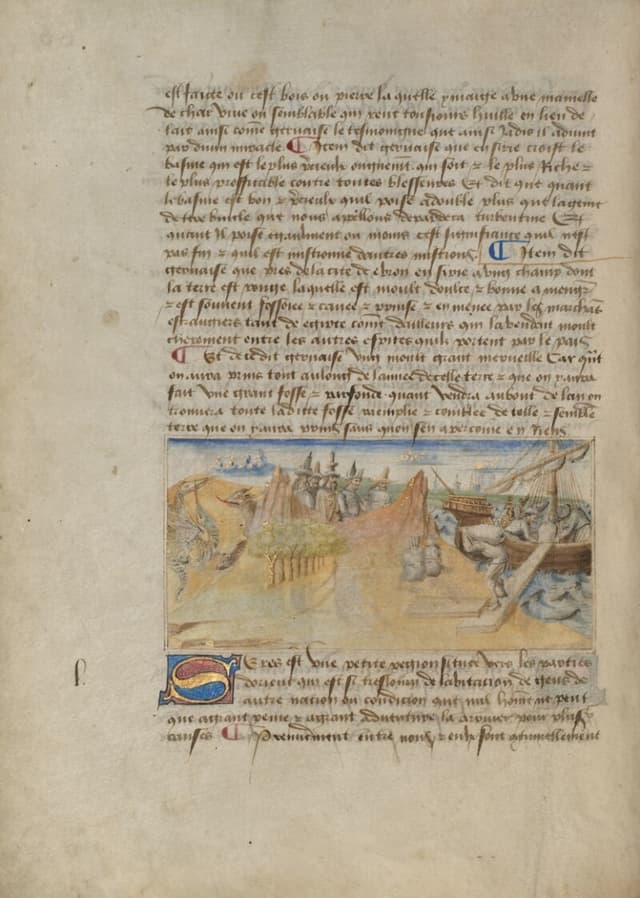 est faitte ou cest bois ou pierre la quelle ymaige a une mamelle
de char vive ou semblable qui rent tousiours huille en lieu de
lait ainsi come gervaise le tesmoingne que ainsi Jadis il advint
par divin miracle ¶ Item dit gervaise que en sirie croist le
basme qui est le plus precieulx onguement qui soit et le plus Riche et
le plus prouffitable contre toutes blesseures Et dit que quant
le basme est bon et precieulx quil poise a double plus que
que nous appellons turbentine Et
quant Il poise egaument ou moins cest signifiance quil nest
pas fin et quil est mistionne dautres mistions ¶ Item dit
gervaise que pres de la cite de ebron en sirie a ung champ dont
la terre est rouge laquelle est moult doulce et bonne a menger
et est souvent fossoiee et cavee et prinse et en menee par les marchans
estrangiers tant de egipte come dailleurs qui la vendent moult
chierement entre les autres espices quilz portent par le pais
¶ Et de ce dit gervaise ung moult grant merveille Car quant
on aura prins tout au long de lannee de celle terre et que on y aura
fait une grant fosse et parfonde quant vendra au bout de lan on
trouvera toute laditte fosse raemplie et comblee de telle et semblable
terre que on y aura prins sans quon sen apercoive en Riens
Seres est une petite region situee vers les parties
dorient qui est si tresloing de labitacion de gens de
autre nation ou condicion que nul homme ne peut
que a grant peine et a grant adventure la trouver pour plusieurs
causes ¶ Premierement entre nous et eulx sont